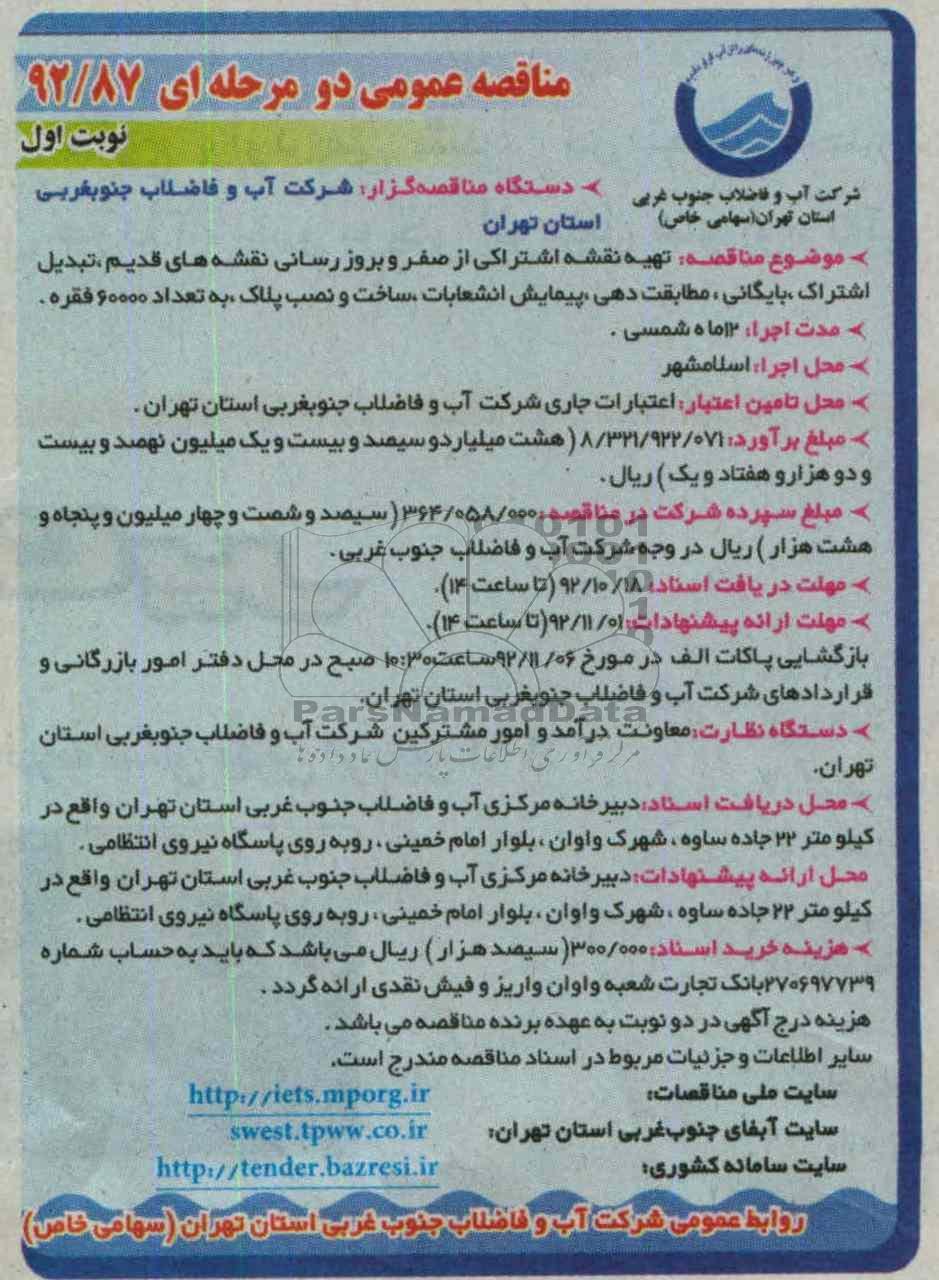 مناقصه عمومی دو مرحله ای ۹۲/۸۷
نوبت اول
شرکت آب و فاضلاب جنوب غربی
استان تهران(سهامی خاص)
دستگاه مناقصه‌گزار: شرکت آب و فاضلاب جنوبغربی
استان تهران
موضوع مناقصه: تهیه نقشه اشتراکی از صفر و بروز رسانی نقشه های قدیم ،تبدیل
اشتراک ،بایگانی ، مطابقت دهی ،پیمایش انشعابات ،ساخت و نصب پلاک ،به تعداد ۶۰۰۰۰ فقره .
مدت اجرا: ۱۲ماه شمسی .
محل اجرا: اسلامشهر
محل تامین اعتبار: اعتبارات جاری شرکت آب و فاضلاب جنوبغربی استان تهران .
مبلغ برآورد: ۸/۳۲۱/۹۲۲/۰۷۱ ( هشت میلیاردو سیصد و بیست و یک میلیون نهصد و بیست
و دو هزارو هفتاد و یک ) ریال .
مبلغ سپرده شرکت در مناقصه: ۳۶۴/۰۵۸/۰۰۰ ( سیصد و شصت و چهار میلیون و پنجاه و
هشت هزار ) ریال در وجه شرکت آب و فاضلاب جنوب غربی .
مهلت دریافت اسناد: ۹۲/۱۰/۱۸ (تا ساعت ۱۴).
مهلت ارائه پیشنهادات: ۹۲/۱۱/۰۱(تا ساعت ۱۴).
بازگشایی پاکات الف در مورخ ۹۲/۱۱/۰۶ساعت۱۰:۳۰ صبح در محل دفتر امور بازرگانی و
قراردادهای شرکت آب و فاضلاب جنوبغربی استان تهران.
ParsNamadData
دستگاه نظارت:معاونت درآمد و امور مشترکین شرکت آب و فاضلاب جنوبغربی استان
مرکز فرآوری اطلاعات پارس نماد داده ها
تهران.
محل دریافت اسناد:دبیرخانه مرکزی آب و فاضلاب جنوب غربی استان تهران واقع در
کیلو متر ۲۲ جاده ساوه ، شهرک واوان ، بلوار امام خمینی ، روبه روی پاسگاه نیروی انتظامی .
محل ارائه پیشنهادات:دبیرخانه مرکزی آب و فاضلاب جنوب غربی استان تهران واقع در
کیلو متر ۲۲ جاده ساوه ، شهرک واوان ، بلوار امام خمینی ، روبه روی پاسگاه نیروی انتظامی .
هزینه خرید اسناد: ۳۰۰/۰۰۰( سیصد هزار ) ریال می باشد که باید به حساب شماره
۲۷۰۶۹۷۷۳۹بانک تجارت شعبه واوان واریز و فیش نقدی ارائه گردد .
هزینه درج آگهی در دو نوبت به عهده برنده مناقصه می باشد .
سایر اطلاعات و جزئیات مربوط در اسناد مناقصه مندرج است.
سایت ملی مناقصات: http://iets.mporg.ir
سایت آبفای جنوب‌غربی استان تهران: swest.tpww.co.ir
سایت سامانه کشوری: http://tender.bazresi.ir
روابط عمومی شرکت آب و فاضلاب جنوب غربی استان تهران (سهامی خاص)